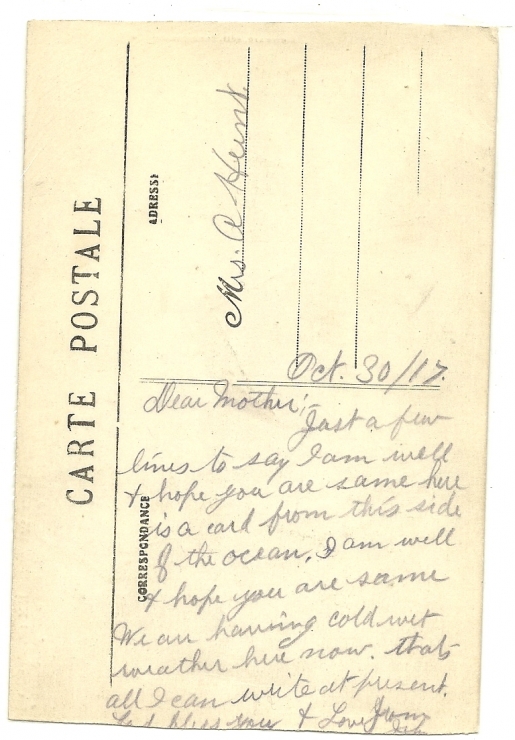 CARTE POSTALE
ADRESSE
Mrs. A Heink
CORRESPONDANCE
Oct. 30/17.
Dear Mother;-
Just a few
lines to say I am well
& hope you are same here
is a card from this side
of the ocean. I am well
& hope you are same
We are having cold wet
weather here now. thats
all I can write at present.
God bless you & Love from